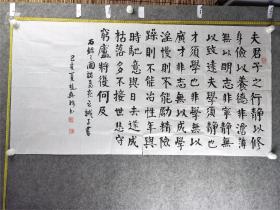 夫君子之行靜以修
身儉以養德非澹薄
無以明志非寧靜無
以致遠夫學須靜也
才須學也非學無以
廣才非志無以成學
淫慢則不能勵精險
躁則不能冶性年與
時馳意與日去遂成
枯落多不接世悲守
窮廬將復何及
諸葛亮之誡子書
己亥夏